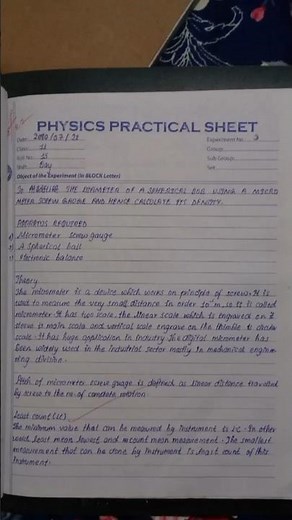 PHYSICS PRACTICAL SHEET
Date: 2080/07/21 Experiment No.: 3
Class: 11 Group:
Roll No.: Sub Group:
Shift: Day Set:
Object of the Experiment (In BLOCK Letter)
To MEASURE THE DIAMETER OF A SPHERICAL BOB USING A MICRO
METER SCREW GAUGE AND HENCE CALCULATE ITS DENSITY.
APPARATUS REQUIRED
Micrometer screw gauge
A spherical ball
Electronic balance
Theory
The micrometer is a device which works on principle of screw. It is
used to measure the very small distance in order 10 m, so it is called
micrometer. It has two scale, the linear scale which is engraved on
sleeve is main scale and vertical scale engrave on the thimble is circular
scale. It has huge application in industry. The digital micrometer has
been widely used in the industrial sector mostly in mechanical engine
ering division.
Pitch of micrometer screw guage is defined as linear distance travelled
by screw to the no. of complete rotation.
Least count (LC)
The minimum value that can be measured by instrument is LC. In other
word least mean lowest and count mean measurement. The smallest
measurement that can be done by instrument is least count of this
instrument.